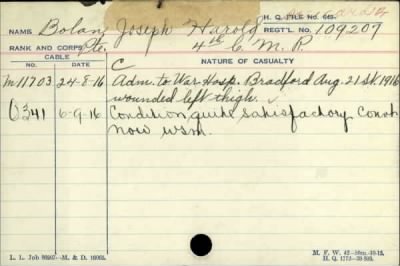 H. Q. FILE No. 649-
NAME Bolan, Joseph Harold REGT'L. No. 109207
RANK AND CORPS Pte. 4th C. M. R.
CABLE NATURE OF CASUALTY
NO. DATE C
M11703 24-8-16 Adm. to War Hosp. Bradford Aug. 21st. 1916
wounded left thigh.
0341 6-9-16 Condition quite satisfactory
now
L. L. Job M. & D.
M. F. W. 42
H. Q. 1772-39-893.